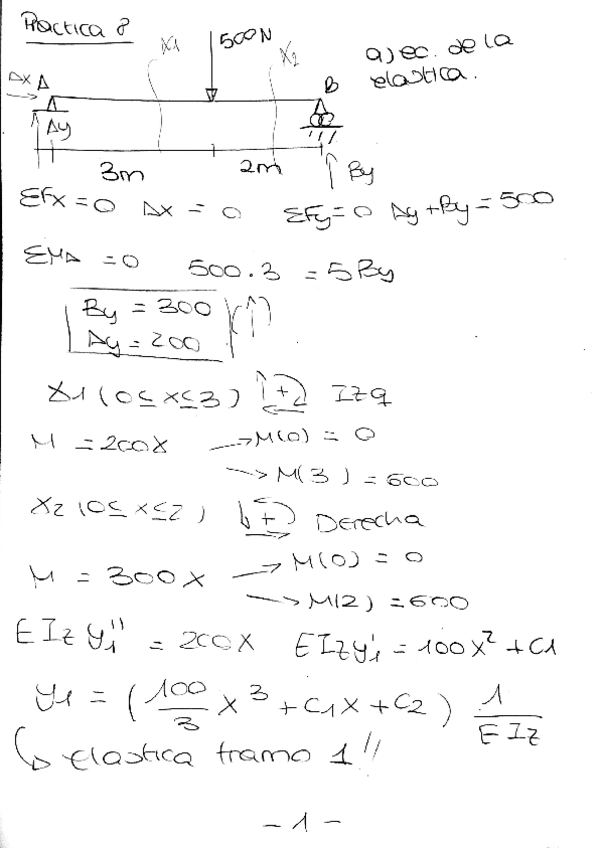 Practica 8
x1
500N
x2
a) ec. de la
elastica.
Ax A
B
Ay
3m
2m
By
ΣFx = 0 Ax = 0 ΣFy = 0 Ay + By = 500
ΣMA = 0 500.3 = 5By
By = 300
Ay = 200 (↑)
X1 (0≤x≤3) + Izq
M = 200x → M(0) = 0
→ M(3) = 600
X2 (0≤x≤2) + Derecha
M = 300x → M(0) = 0
→ M(2) = 600
EIz y1'' = 200x EIz y1' = 100x² + C1
y1 = (100/3 x³ + C1x + C2) 1/EIz
↳ elastica tramo 1//
- 1 -